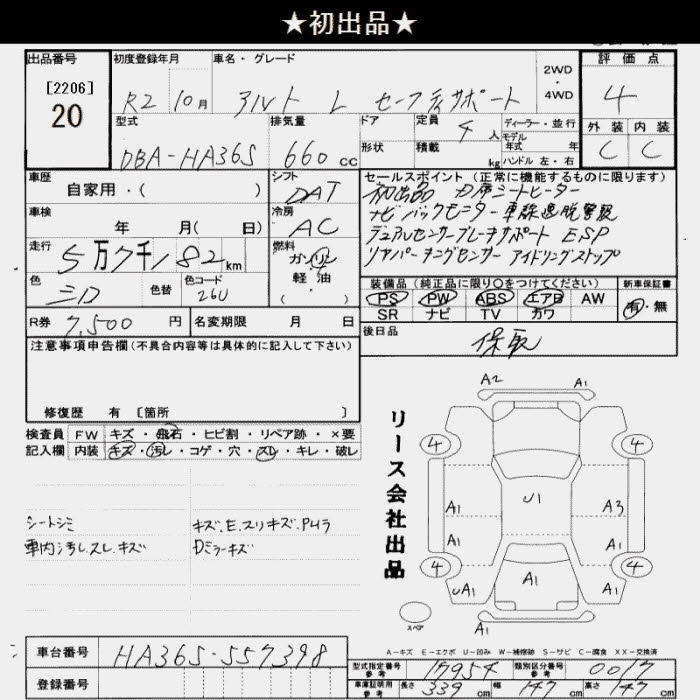 ★初出品★
出品番号 初度登録年月 車名・グレード 2WD・4WD 評価点
[2206]
20
R2 10月 アルト L セーフティサポート 4
型式 排気量 ドア 定員 4人 ディーラー・並行
モデル年式 年
外装 内装
DBA-HA36S 660cc 形状 積載 kg ハンドル 左・右 C C
車歴 シフト セールスポイント (正常に機能するものに限ります)
自家用・( ) DAT 初出品
シートヒーター
車検 冷房 ナビ バックモニター 車線逸脱警報
年 月( 日) AC デュアルセンサーブレーキサポート ESP
走行 5万7千182km 燃料 ガソリン リヤパーキングセンサー アイドリングストップ
軽油
・( )
色 色替 色コード
26U
装備品 (純正品に限り○をつけてください) 新車保証書
PS PW ABS エアB AW 有・無
SR ナビ TV カワ
R券 7,500円 名変期限 月 日 後日品
保取
注意事項申告欄(不具合内容等は具体的に記入して下さい)
修復歴 有 [箇所 ]
検査員 FW キズ・飛石・ヒビ割・リペア跡・×要
記入欄 内装 キズ・汚レ・コゲ・穴・スレ・キレ・破レ
シートシミ キズ.E.スリキズ.PHラ
車内汚レ.スレ.キズ Dミラーキズ
リース会社出品
A2 A1
4 4
A1 U1 A3
A1 A1
4 4
UA1 A1 A1
スペア
A1
A-キズ E-エクボ U-凹み W-補修跡 S-サビ C-腐食 XX-交換済
車台番号 HA36S-557398
登録番号
型式指定番号 参考 17954 類別区分番号 参考 0017
車庫証明用 参考 長さ 339cm 幅 147cm 高さ 147cm